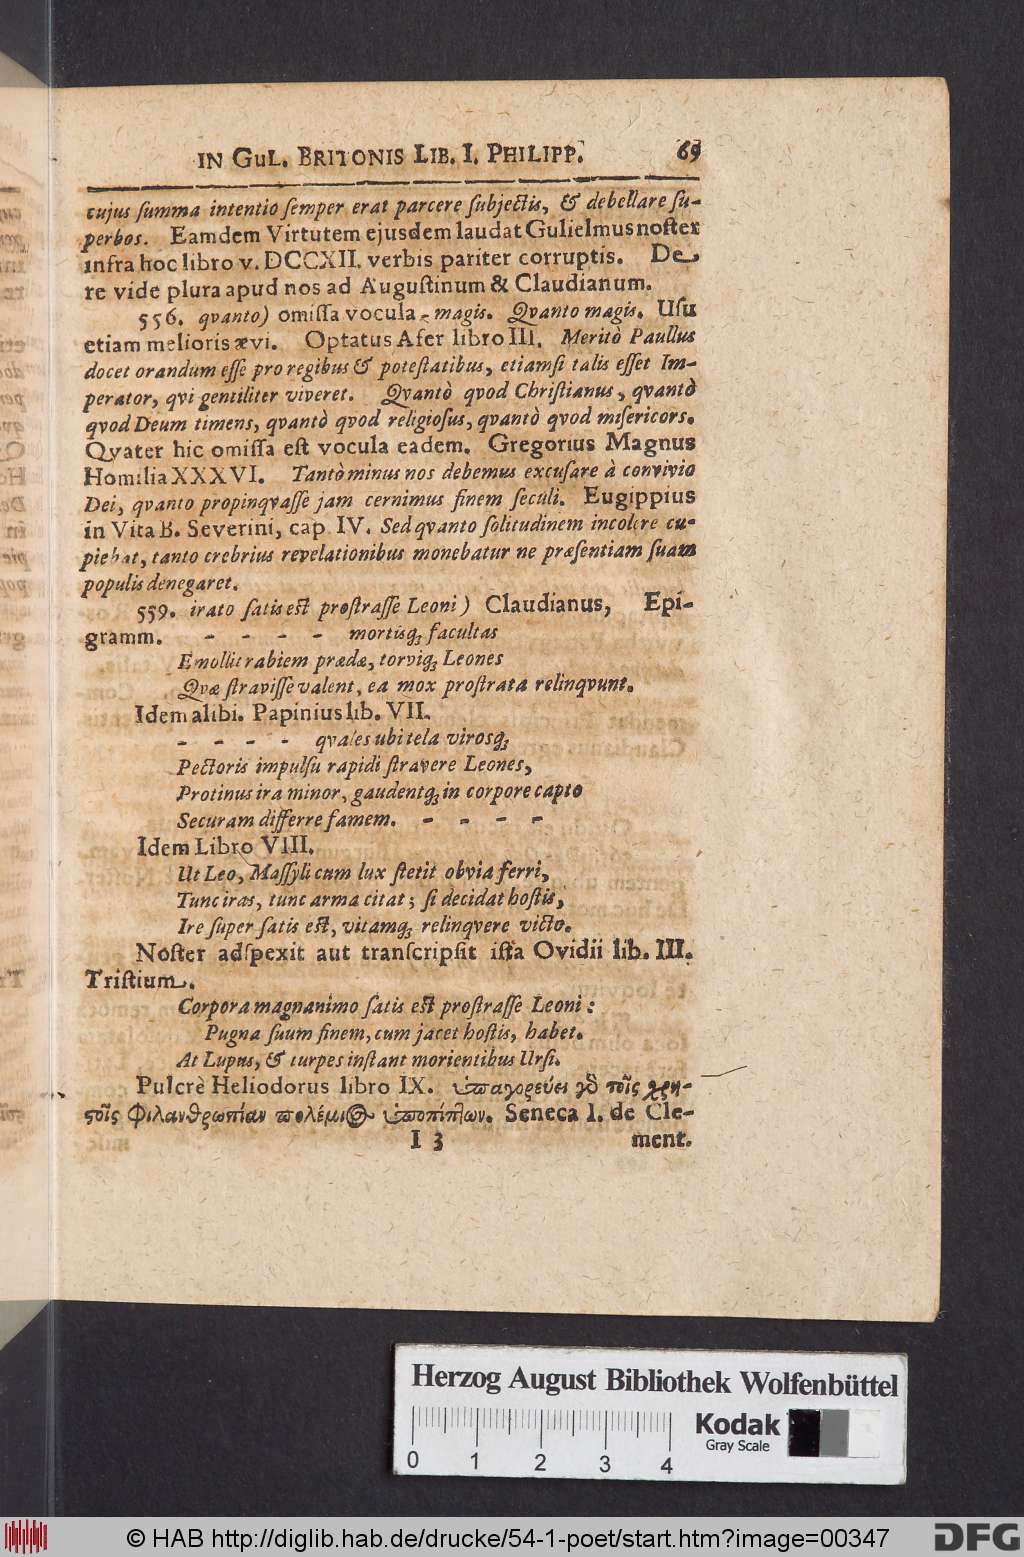 IN GUL. BRITONIS LIB. I. PHILIPP. 69
cujus ſumma intentio ſemper erat parcere ſubjectis, & debellare ſu-
perbos. Eamdem Virtutem ejusdem laudat Gulielmus noſter
infra hoc libro v. DCCXII. verbis pariter corruptis. De
re vide plura apud nos ad Auguſtinum & Claudianum.
556. qvanto) omiſſa vocula - magis. Qvanto magis. Uſu
etiam melioris ævi. Optatus Afer libro III. Meritò Paullus
docet orandum eſſe pro regibus & poteſtatibus, etiamſi talis eſſet Im-
perator, qvi gentiliter viveret. Qvantò qvod Chriſtianus, qvantò
qvod Deum timens, qvantò qvod religioſus, qvantò qvod miſericors.
Qvater hic omiſſa eſt vocula eadem. Gregorius Magnus
Homilia XXXVI. Tantò minus nos debemus excuſare à convivio
Dei, qvanto propinqvaſſe jam cernimus finem ſeculi. Eugippius
in Vita B. Severini, cap. IV. Sed qvanto ſolitudinem incolere cu-
piebat, tanto crebrius revelationibus monebatur ne præſentiam ſuam
populis denegaret.
559. irato ſatis eſt proſtraſſe Leoni) Claudianus, Epi-
gramm. - - - - mortisq; facultas
Emollit rabiem prædæ, torviq; Leones
Qvæ ſtraviſſe valent, ea mox proſtrata relinqvunt.
Idem alibi. Papinius lib. VII.
- - - - qvales ubi tela virosq;
Pectoris impulſu rapidi ſtravere Leones,
Protinus ira minor, gaudentq; in corpore capto
Securam differre famem. - - - -
Idem Libro VIII.
Ut Leo, Maſſyli cum lux ſtetit obvia ferri,
Tunc iras, tunc arma citat; ſi decidat hoſtis,
Ire ſuper ſatis eſt, vitamq; relinqvere victo.
Noſter adſpexit aut tranſcripſit iſta Ovidii lib. III.
Triſtium.
Corpora magnanimo ſatis eſt proſtraſſe Leoni:
Pugna ſuum finem, cum jacet hoſtis, habet.
At Lupus, & turpes inſtant morientibus Urſi.
Pulcrè Heliodorus libro IX. ὑπαγορεύει γὸ τοῖς χρη-
ςοῖς φιλανθρωπίαν πολέμιος ὑποπίπτων. Seneca l. de Cle-
I 3 ment.
Herzog August Bibliothek Wolfenbüttel
0 1 2 3 4
Kodak
Gray Scale
© HAB http://diglib.hab.de/drucke/54-1-poet/start.htm?image=00347
DFG